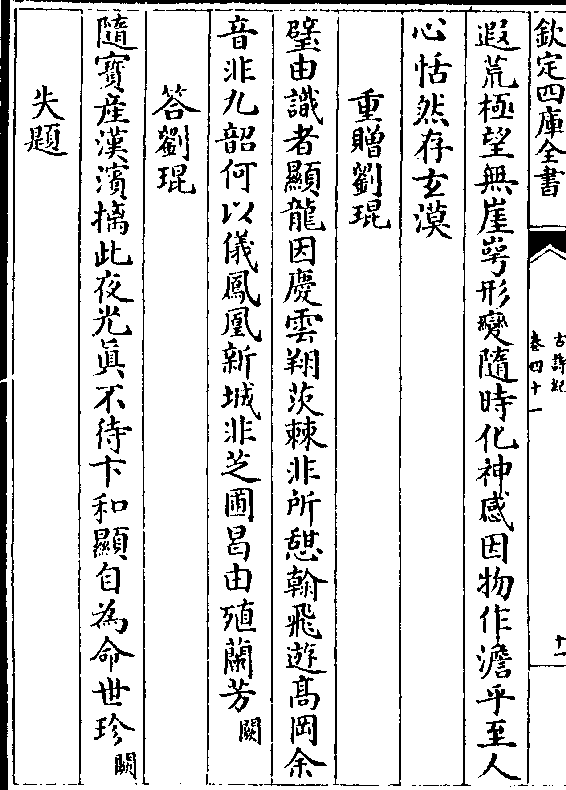 欽定四庫全書
古詩紀
卷四十一
十一
遐荒極望無崖崿形變隨時化神感因物作澹乎至人
心恬然存玄漠
重贈劉琨
璧由識者顯龍因慶雲翔茨棘非所憩翰飛遊髙岡余
音非九韶何以儀鳳凰新城非芝圃曷由殖蘭芳闕
答劉琨
隨寳產漢濱摛此夜光眞不待卞和顯自為命世珍闕
失題